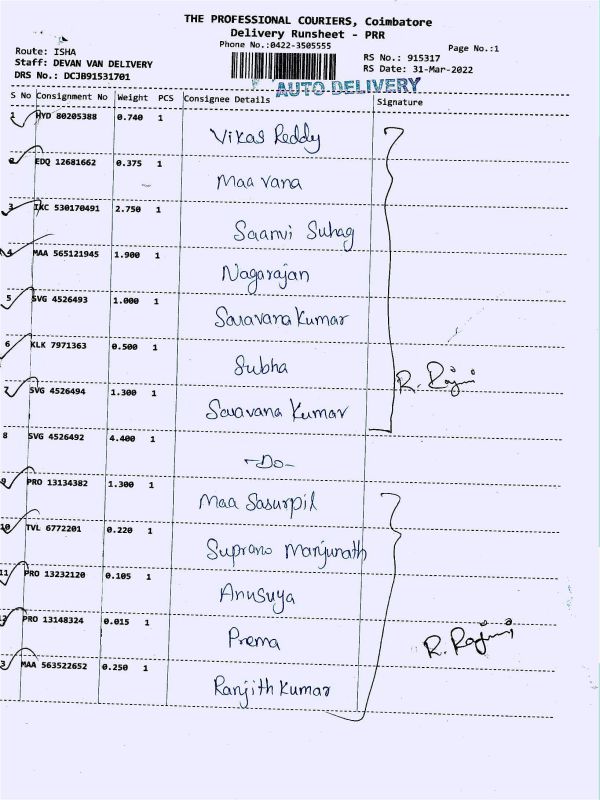 THE PROFESSIONAL COURIERS, Coimbatore
Delivery Runsheet - PRR
Phone No.:0422-3505555
Page No.:1
Route: ISHA
Staff: DEVAN VAN DELIVERY
DRS No.: DCJB91531701
RS No.: 915317
RS Date: 31-Mar-2022
AUTO DELIVERY
S No Consignment No Weight PCS Consignee Details Signature
1 HYD 80205388 0.740 1 Vikas Reddy
2 EDQ 12681662 0.375 1 Maa vana
3 IKC 530170491 2.750 1 Saanvi Suhag
4 MAA 565121945 1.900 1 Nagarajan
5 SVG 4526493 1.000 1 Saravana Kumar
6 KLK 7971363 0.500 1 Subha
R. Rajini
7 SVG 4526494 1.300 1 Saravana Kumar
8 SVG 4526492 4.400 1 -Do-
9 PRO 13134382 1.300 1 Maa Sasurpil
10 TVL 6772201 0.220 1 Suprano Manjunath
11 PRO 13232120 0.105 1 Anusuya
12 PRO 13148324 0.015 1 Prema
R. Rajini
3 MAA 563522652 0.250 1 Ranjith Kumar